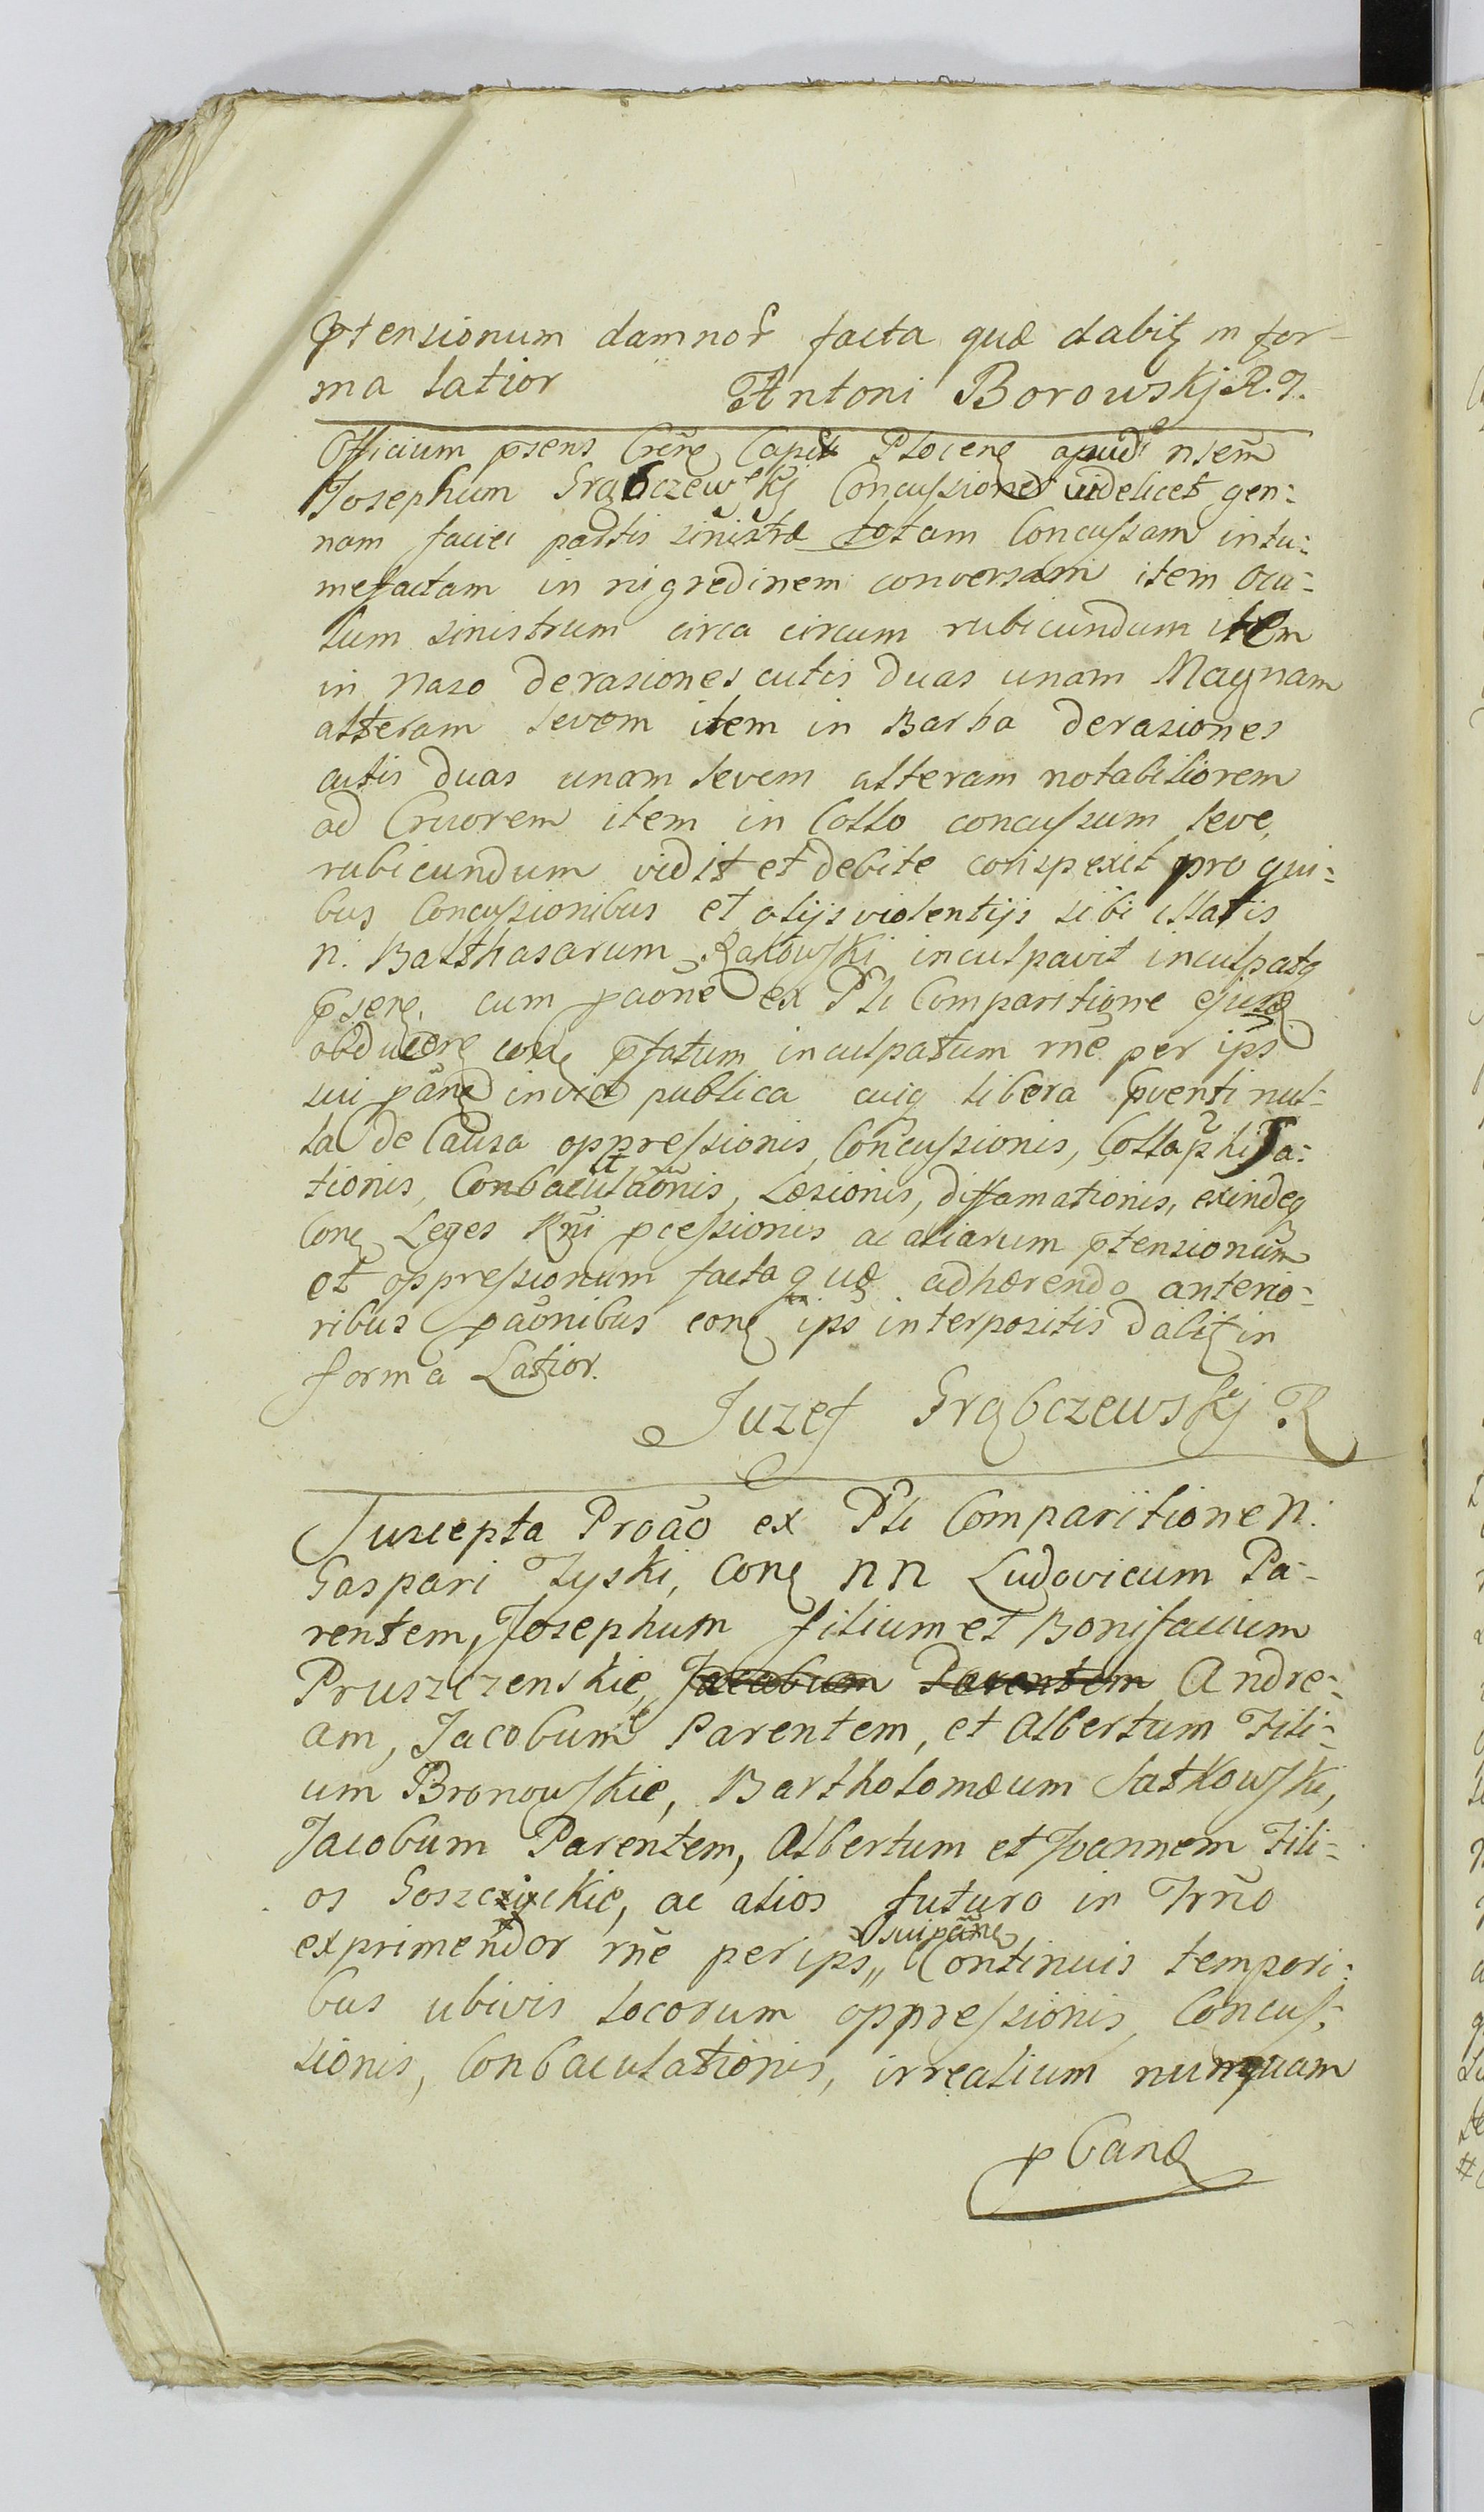 ptensionum damnor facta quæ dabitz in for-
ma latior Antoni Borowskj R. J.
Officium psens Crêne Capit Plocene apud nsem
Josephum Grąbczewskj Concussiones videlicet gen:
nam faciei partis sinistræ totam Concussam intu:
mefactam in nigredinem conversam item ocu:
lum sinistrum circa circum rubicundum item
in naso derasiones cutis duas unam Magnam
alteram levem item in Barba derasiones
cutis duas unam levem alteram notabiliorem
ad Cruorem item in Collo concussum leve,
rubicundum vidit et debite conspexit pro qui:
bus Concussionibus et alijs violentijs sibi illatis
n. Balthasarum Rakowski inculpavit inculpatq
psene, cum paone ex Pli Comparitione ejusd
obducere cone pfatum inculpatum rne per ips
sui pane in via publica cuiq libera pventi nul-
la de Causa oppressionis, Concussionis, Collaphisa:
tionis, Conbaculaonis, Læsionis, diffamationis, exindeq
Cone Leges Rni pcessionis ac aliarum ptensionum
et oppressionum facta quæ adhærendo anterio:
ribus paonibus cone ips interpositis dabitz in
forma Latior.
Juzef Grąbczewskj R
Suscepta Proao ex Pli Comparitione N:
Gaspari Zyski, Cone NN Ludovicum Pa-
rentem, Josephum filium et Bonifacium
Pruszczenskie, Jacobum Parentem Andre-
am, Jacobum Parentem, et Albertum Fili-
um Bronowskie, Bartholomæum Satkowski,
Jacobum Parentem, Albertum et Joannem Fili-
os Goszczickie, ac alios futuro in Trno
exprimendor rne per ips,, sui pane Continuis tempori:
bus ubivis locorum oppressionis, Concus:
sionis, Conbaculationis, irrealium nunquam
pband